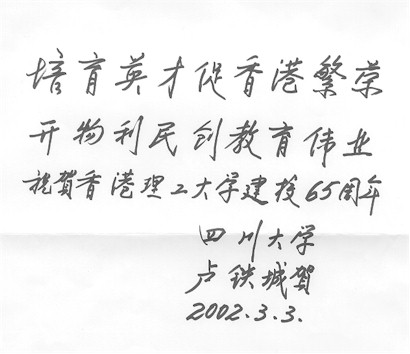 培育英才促香港繁荣
开物利民创教育伟业
祝贺香港理工大学建校65周年
四川大学
卢铁城贺
2002.3.3.